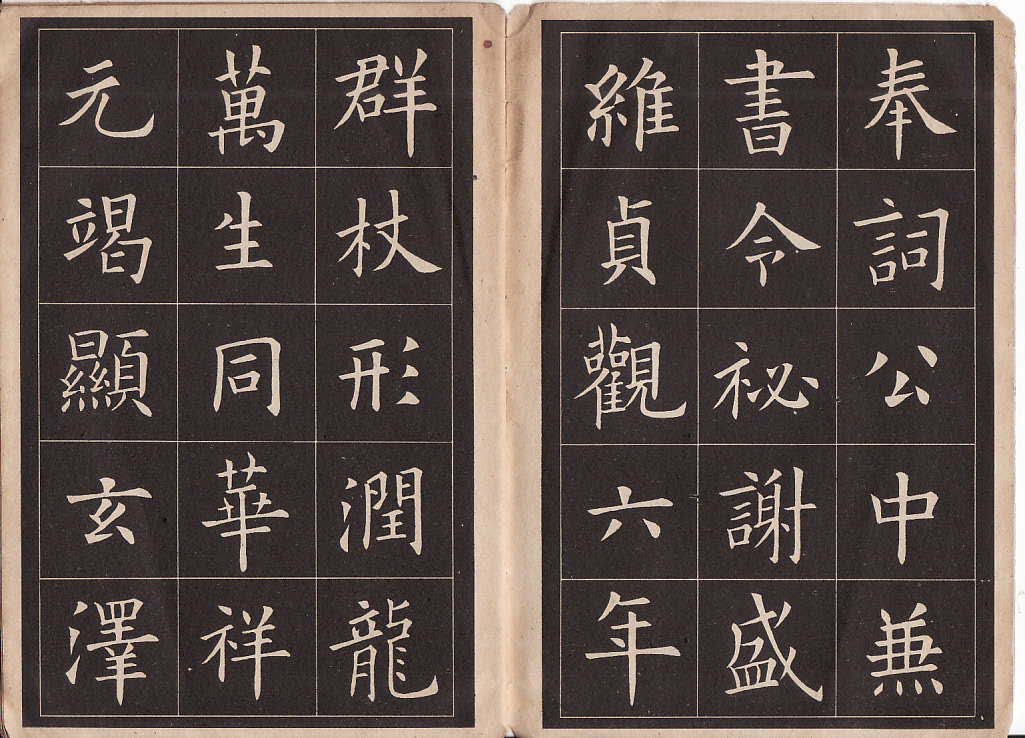 奉詞公中兼
書令祕謝盛
維貞觀六年
群杖形潤龍
萬生同華祥
元竭顯玄澤